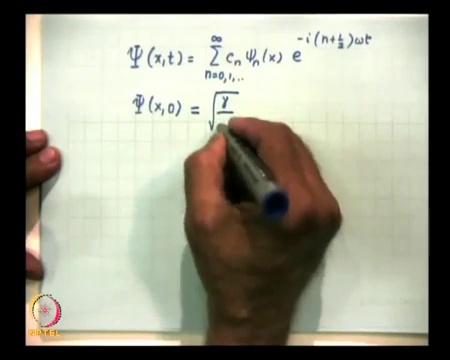 Ψ(x,t) = ∑_{n=0,1,..}^{∞} c_n ψ_n(x) e^{-i(n+½)ωt}
Ψ(x,0) = √γ
NPTEL